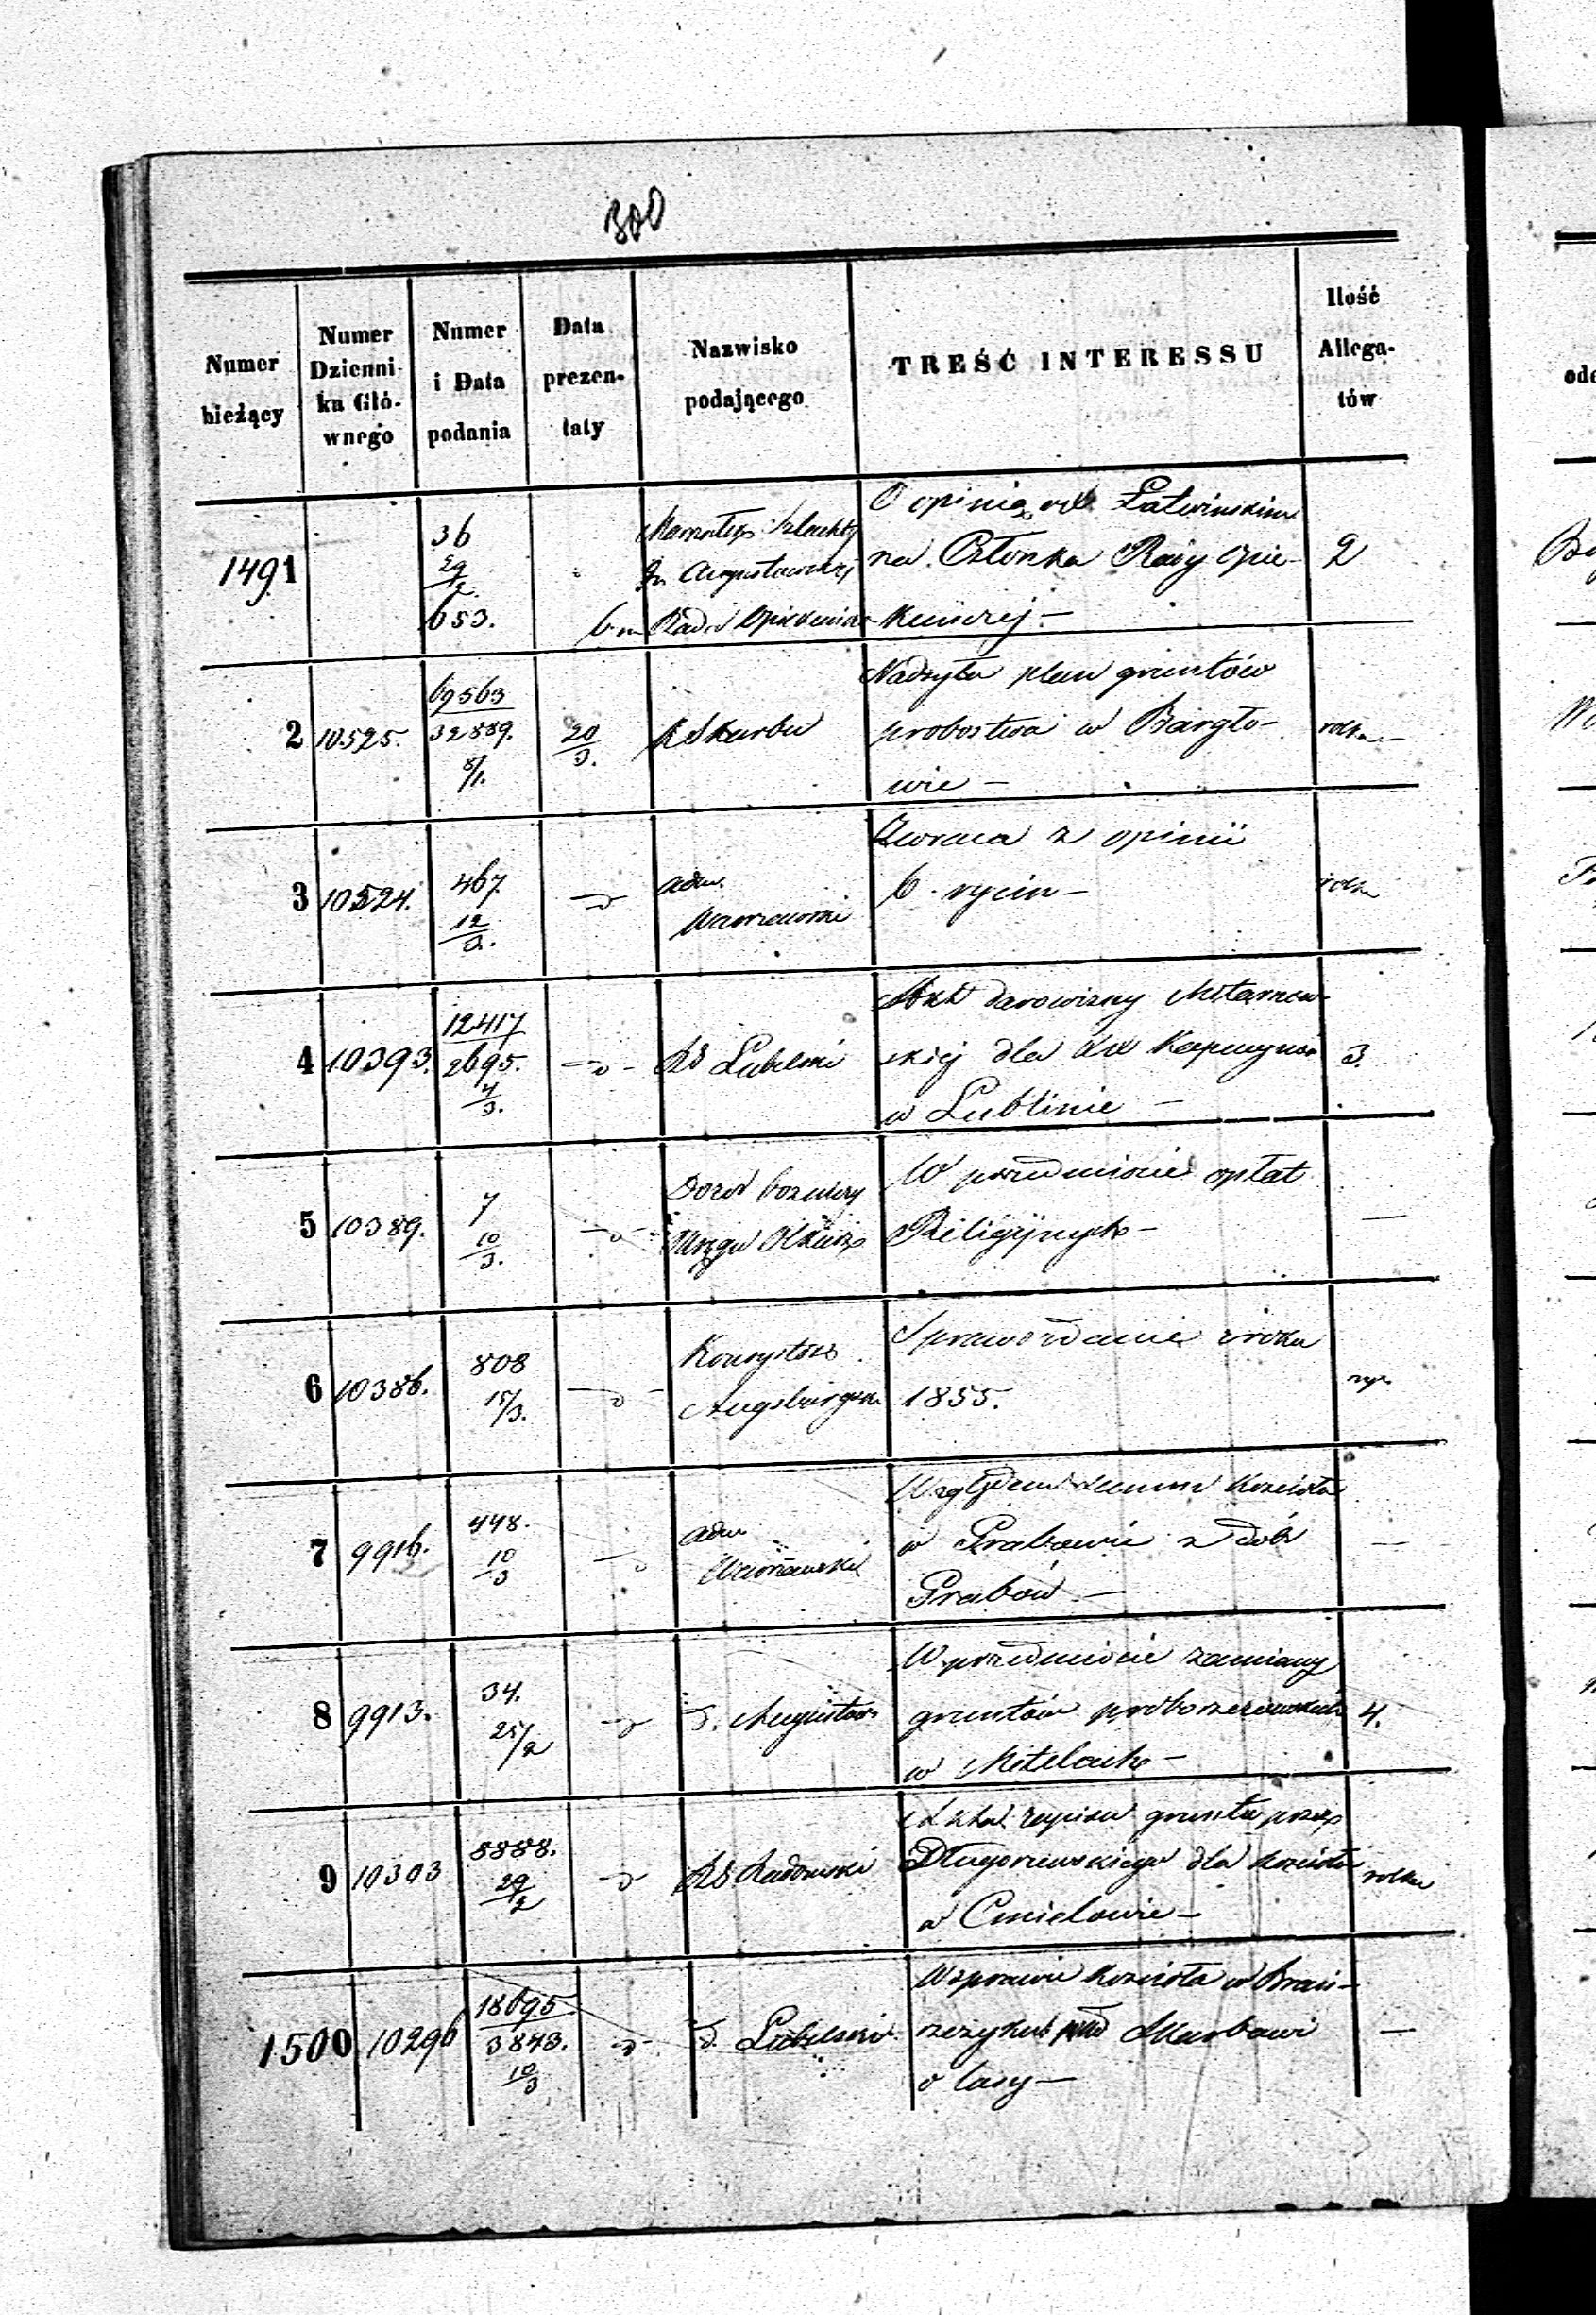 300
Numer bieżący | Numer Dzienni- ka Głó- wnego | Numer i Data podania | Data prezen- taty | Nazwisko podającego | TREŚĆ INTERESSU | Ilość Allega- tów
1491 | | 36 29/2 653. | | Marszałek Szlachty Gu Augustowskiej Rada Opiekuńcza | O opinią Łatwińskim na Członka Rady Opie- kuńczej — | 2
2 | 10525. | 69563/32889. 8/1. | 20/3. | KSkarbu | Nadsyła plan gruntów probostwa w Bargło- wie — | rolka —
3 | 10524. | 467 12/3. | — | Adm. Warszawski | Zwraca z opinii 6. rycin — | rolka
4 | 10393. | 12417/2695. 4/3. | — | RG Lubelski | Akt darowizny skiej dla XX Kapucynów w Lublinie — | 3.
5 | 10389. | 7 10/3. | — | Dozór bożniczy Okręgu Olkusz | W przedmiocie opłat Religijnych — | —
6 | 10386. | 808 15/3. | — | Konsystorz Augsburgski | Sprawozdanie z roku 1855. |
7 | 9916. | 448. 10/3 | — | Adm Warszawski | Względem summ Kościoła w Grabowie z dóbr Grabów — | —
8 | 9913. | 34. 25/2 | — | d. Augustows | W przedmiocie zamiany gruntów proboszczowskich w Metelach — | 4.
9 | 10303 | 8888. 29/2 | — | RG Radomski | zapisu gruntu przez Długoszewskiego dla Kościoła w Cmielowie — | rolka
1500 | 10296 | 18695/3843. 10/3 | — | d. Lubelski | W sprawie Kościoła w Brań- szczykach Skarbowi o lasy — | —